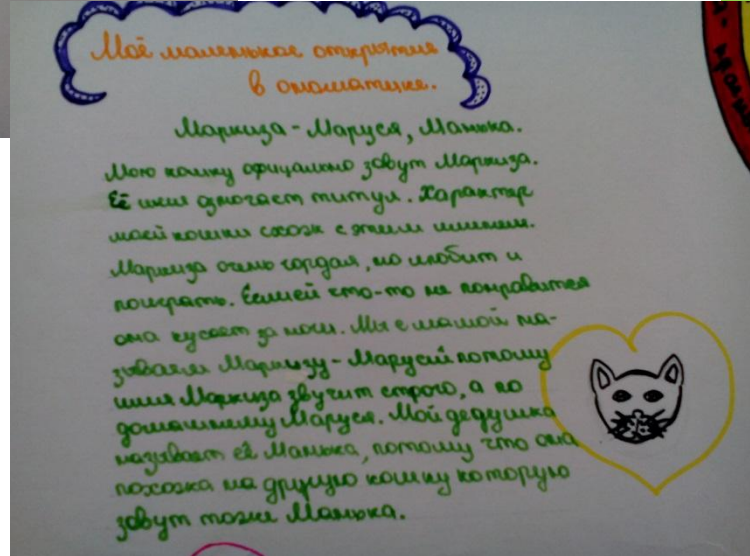 Моё маленькое открытие
в ономатике.
Маркиза - Маруся, Манька.
Мою кошку официально зовут Маркиза.
Её имя означает титул. Характер
моей кошки схож с этим именем.
Маркиза очень гордая, но любит и
поиграть. Если ей что-то не понравится
она кусает за ноги. Мы с мамой на-
зываем Маркизу - Марусей потому
имя Маркиза звучит строго, а по
домашнему Маруся. Мой дедушка
называет её Манька, потому что она
похожа на другую кошку которую
зовут тоже Манька.